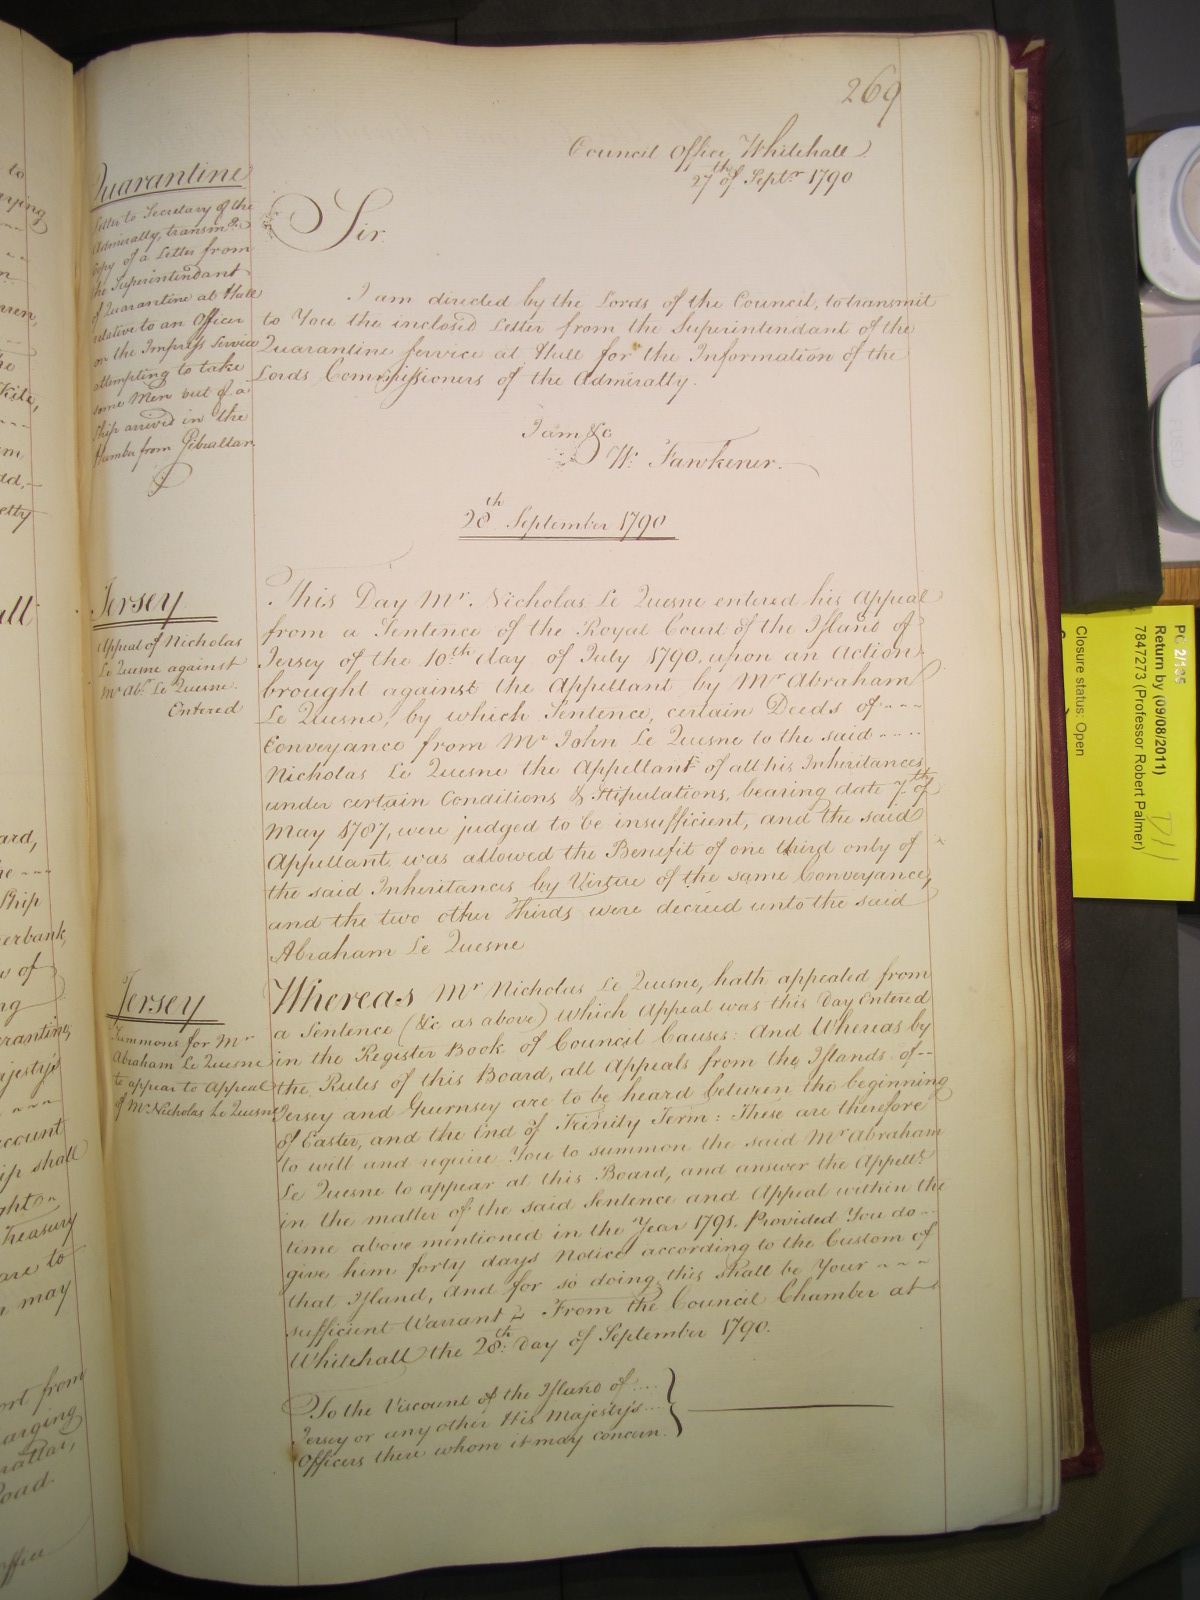 269
Council Office, Whitehall
27th of Septr. 1790
Quarantine
Letter to Secretary of the
Admiralty, transmg.
Copy of a Letter from
the Superintendant
of Quarantine at Hull
relative to an Officer
on the Impress Service
attempting to take
some Men out of a
Ship arrived in the
Humber from Gibraltar
Sir
I am directed by the Lords of the Council, to transmit
to You the inclosed Letter from the Superintendant of the
Quarantine Service at Hull for the Information of the
Lords Commissioners of the Admiralty.
I am &c
W. Fawkener.
28th September 1790
Jersey
Appeal of Nicholas
Le Quesne against
Mr. Abm. Le Quesne.
Entered
This Day Mr. Nicholas Le Quesne entered his Appeal
from a Sentence of the Royal Court of the Island of
Jersey of the 10th day of July 1790, upon an Action
brought against the Appellant by Mr Abraham
Le Quesne, by which Sentence, certain Deeds of ---
Conveyance from Mr John Le Quesne to the said ----
Nicholas Le Quesne the Appellant of all his Inheritances
under certain Conditions & Stipulations, bearing date 7th of
May 1787, were judged to be insufficient, and the said
Appellant was allowed the Benefit of one third only of
the said Inheritances by Virtue of the same Conveyance,
and the two other Thirds were decreed unto the said
Abraham Le Quesne
Jersey
Summons for Mr
Abraham Le Quesne
to appear to Appeal
of Mr Nicholas Le Quesne
Whereas Mr Nicholas Le Quesne, hath appealed from
a Sentence (&c as above) which Appeal was this Day Entered
in the Register Book of Council Causes: And Whereas by
the Rules of this Board, all Appeals from the Islands of --
Jersey and Guernsey are to be heard between the beginning
of Easter, and the End of Trinity Term: These are therefore
to will and require You to summon the said Mr Abraham
Le Quesne to appear at this Board, and answer the Appellt.
in the matter of the said Sentence and Appeal within the
time above mentioned in the Year 1791. Provided You do --
give him forty days Notice according to the Custom of
that Island, And for so doing this shall be Your ----
sufficient Warrant From the Council Chamber at
Whitehall the 28th: Day of September 1790.
To the Viscount of the Island of ....
Jersey or any other His Majesty's ...
Officers there whom it may concern.
PC 2/135
Return by (09/08/2011)
7847273 (Professor Robert Palmer)
Closure status: Open
D11